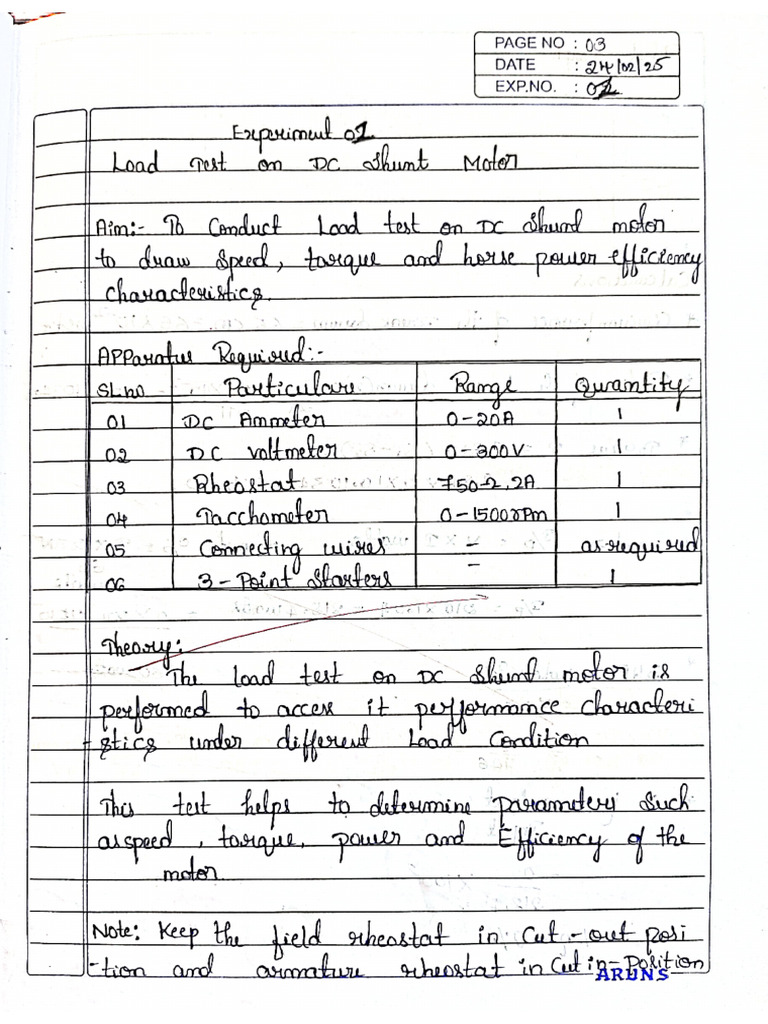 PAGE NO : 03
DATE : 24/02/25
EXP.NO. : 02
Experiment 02
Load Test on DC Shunt Motor
Aim:- To Conduct Load test on DC Shunt motor
to draw Speed, torque and horse power efficiency
characteristics.
Apparatus Required:-
SL.no Particulars Range Quantity
01 DC Ammeter 0-20A 1
02 DC voltmeter 0-300V 1
03 Rheostat 750Ω, 2A 1
04 Tacchometer 0-15000rpm 1
05 Connecting wires - as required
06 3-Point Starters - 1
Theory:
The load test on DC Shunt motor is
performed to access it performance characteri
-stics under different Load Condition
This test helps to determine parameters Such
as speed, torque, power and Efficiency of the
motor
Note: Keep the field rheostat in Cut-out posi
-tion and armature rheostat in Cut in-Position
ARUN S